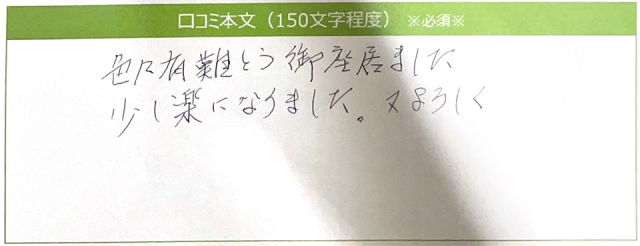 口コミ本文（150文字程度）※必須※
色々有難とう御座居ました
少し楽になりました。又よろしく